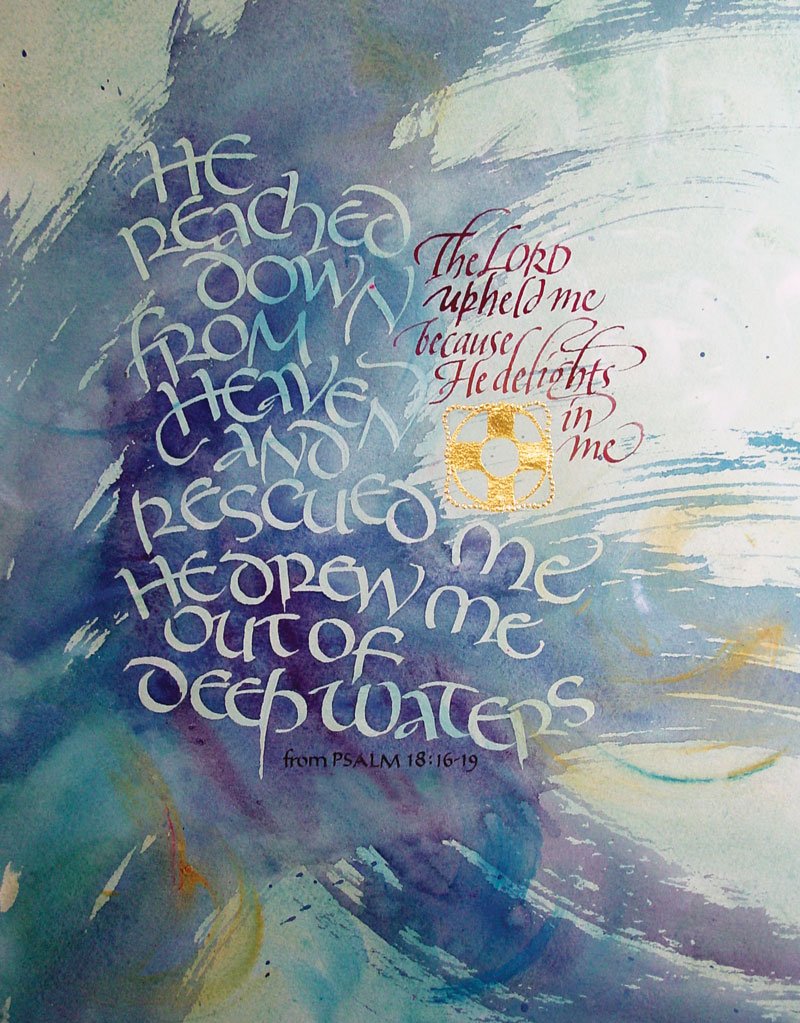 HE
REACHED
DOWN
FROM
HEAVEN
AND
RESCUED ME
HE DREW ME
OUT OF
DEEP WATERS
The LORD
upheld me
because
He delights
in
me
from PSALM 18:16-19